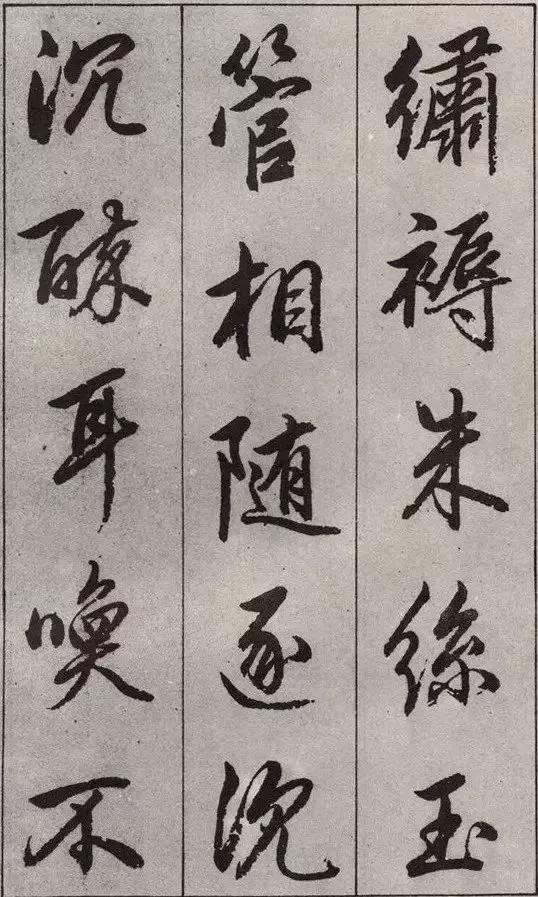 繡褥朱絲玉
管相随逐沉
沉酔耳喚不